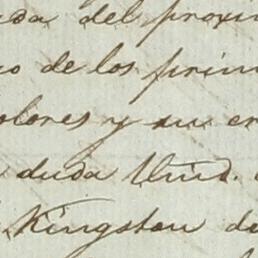 da del proxi
o de los prim
olores y su en
duda Vmd.
Kingston de